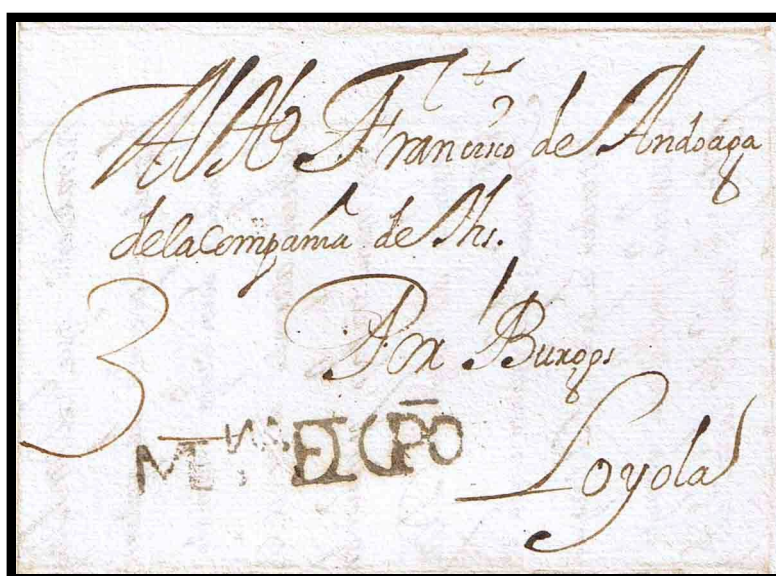 Al Ao Francisco de Andoaga
dela Compañia de Jhs.
Por Burgos
3
Loyola